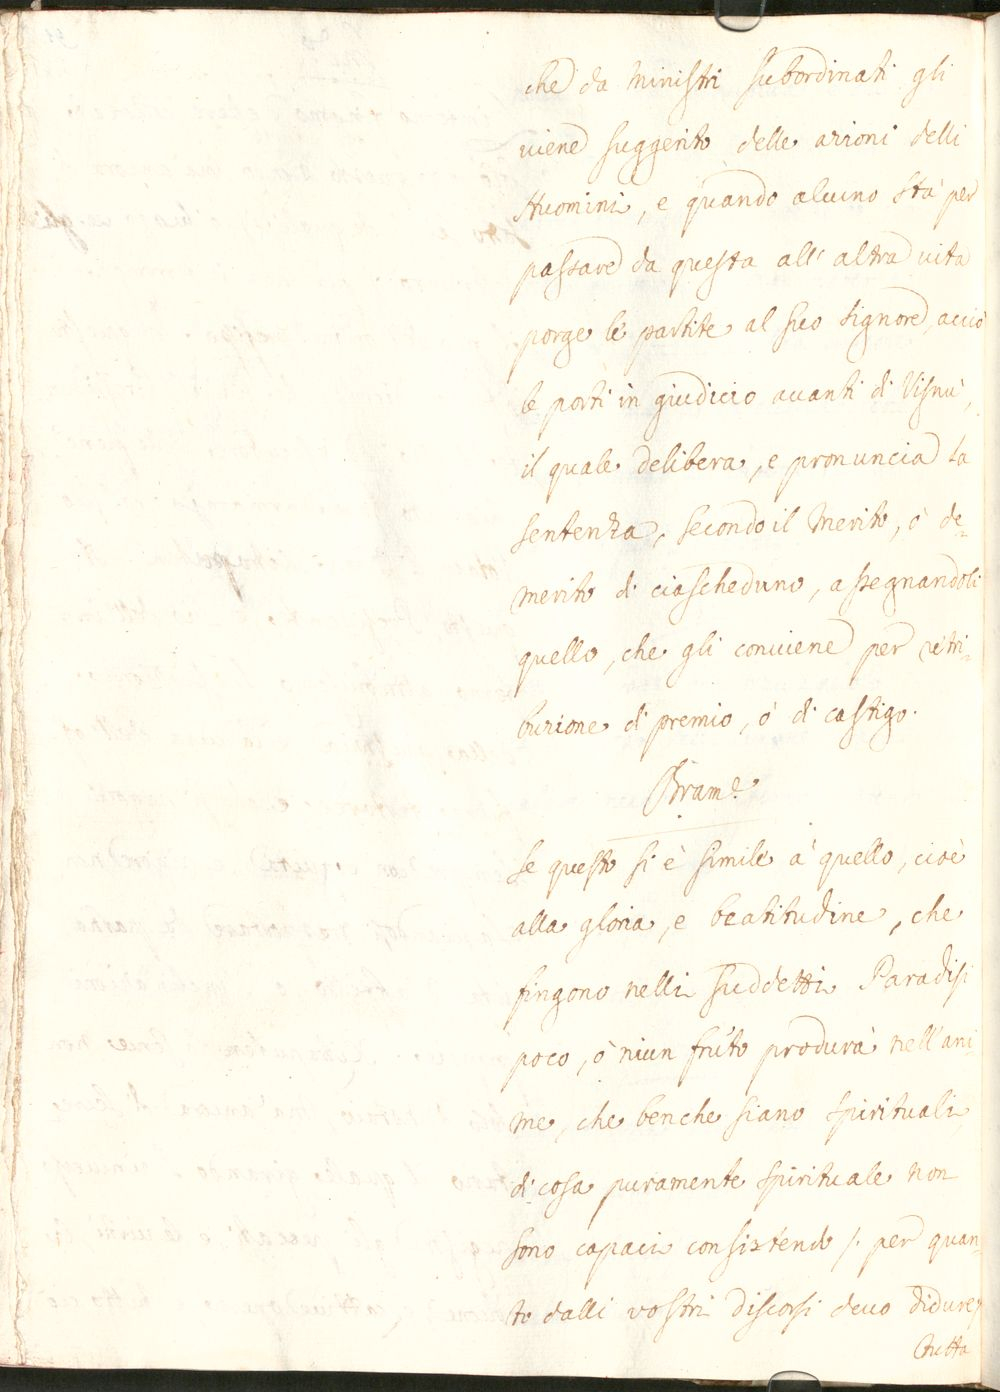 che da Ministri subordinati gli
viene suggerito delle azioni delli
Huomini, e quando alcuno stà per
passare da questa all' altra vita
porge le partite al suo signore, acciò
le porti in giudicio avanti di Visnù,
il quale delibera, e pronuncia la
sentenza, secondo il merito, ò de-
merito di ciascheduno, assegnandoli
quello, che gli conviene per retri-
buzione di premio, ò di castigo.
Bram.e
Se questo si è simile à quello, cioè
alla gloria, e beatitudine, che
fingono nelli suddetti Paradisi
poco, ò niun fruto produrà nell'ani-
me, che benche siano spirituali,
di cosa puramente spirituale non
sono capaci consistendo /. per quan-
to dalli vostri discorsi devo didure/
tutta